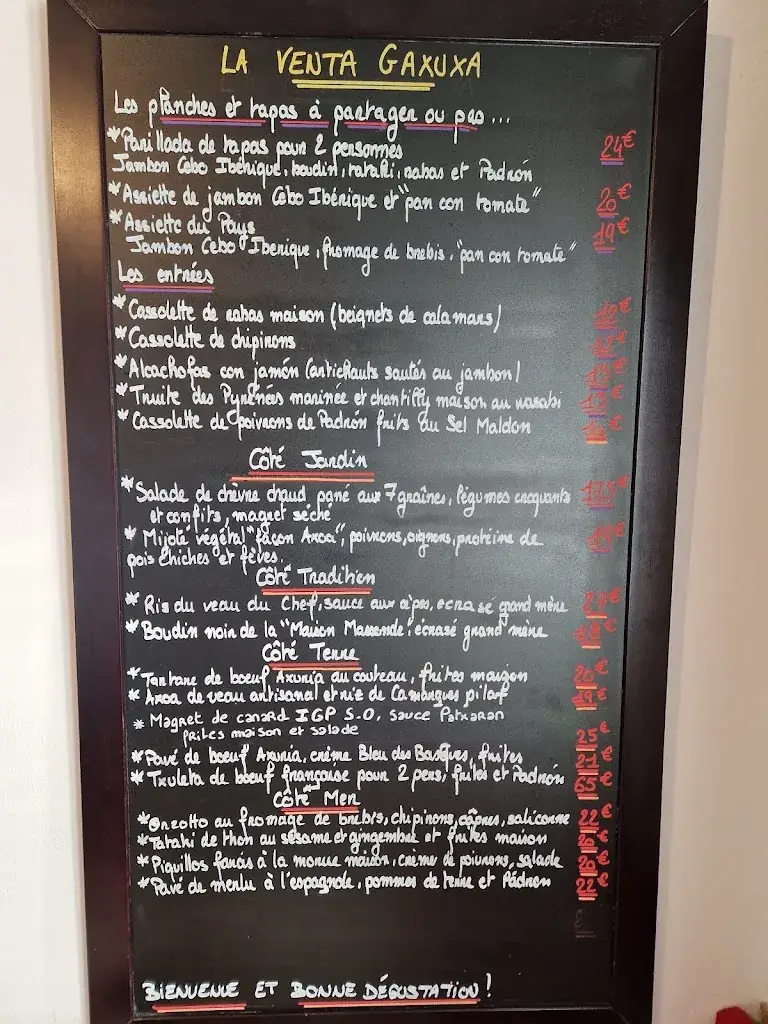 LA VENTA GAXUXA
Les planches et tapas à partager ou pas...
*Parillada de tapas pour 2 personnes 24€
Jambon Cebo Ibérique, boudin, tataki, rabas et Padrón
*Assiette de jambon Cebo Ibérique et "pan con tomate" 20€
*Assiette du Pays 19€
Jambon Cebo Iberique, fromage de brebis, "pan con tomate"
Les entrées
*Cassolette de rabas maison (beignets de calamars) €
*Cassolette de chipirons €
*Alcachofas con jamón (artichauts sautés au jambon) €
*Truite des Pyrénées marinée et chantilly maison au wasabi €
*Cassolette de poivrons de Padrón frits au Sel Maldon €
Côté Jardin
*Salade de chèvre chaud pané aux 7 graines, légumes croquants €
et confits, magret séché
*Mijoté végétal "façon Axoa", poivrons, oignons, protéine de €
pois chiches et fèves.
Côté Tradition
*Ris du veau du Chef, sauce aux cèpes, ecrasé grand mère 27€
*Boudin noir de la "Maison Massonde", écrasé grand mère 18€
Côté Terre
*Tartare de boeuf Axuria au couteau, frites maison 20€
*Axoa de veau artisanal et riz de Camargues pilaf 19€
*Magret de canard IGP S-O, sauce Patxaran
frites maison et salade 25€
*Pavé de boeuf Axuria, crème Bleu des Basques, frites 21€
*Txuleta de boeuf française pour 2 pers, frites et Padrón 65€
Côté Mer
*Orzotto au fromage de brebis, chipirons, câpres, salicorne 22€
*Tataki de thon au sésame et gingembre et frites maison 20€
*Piquillos farcis à la morue maison, crème de poivrons, salade 20€
*Pavé de merlu à l'espagnole, pommes de terre et Pádron 22€
BIENVENUE ET BONNE DÉGUSTATION!